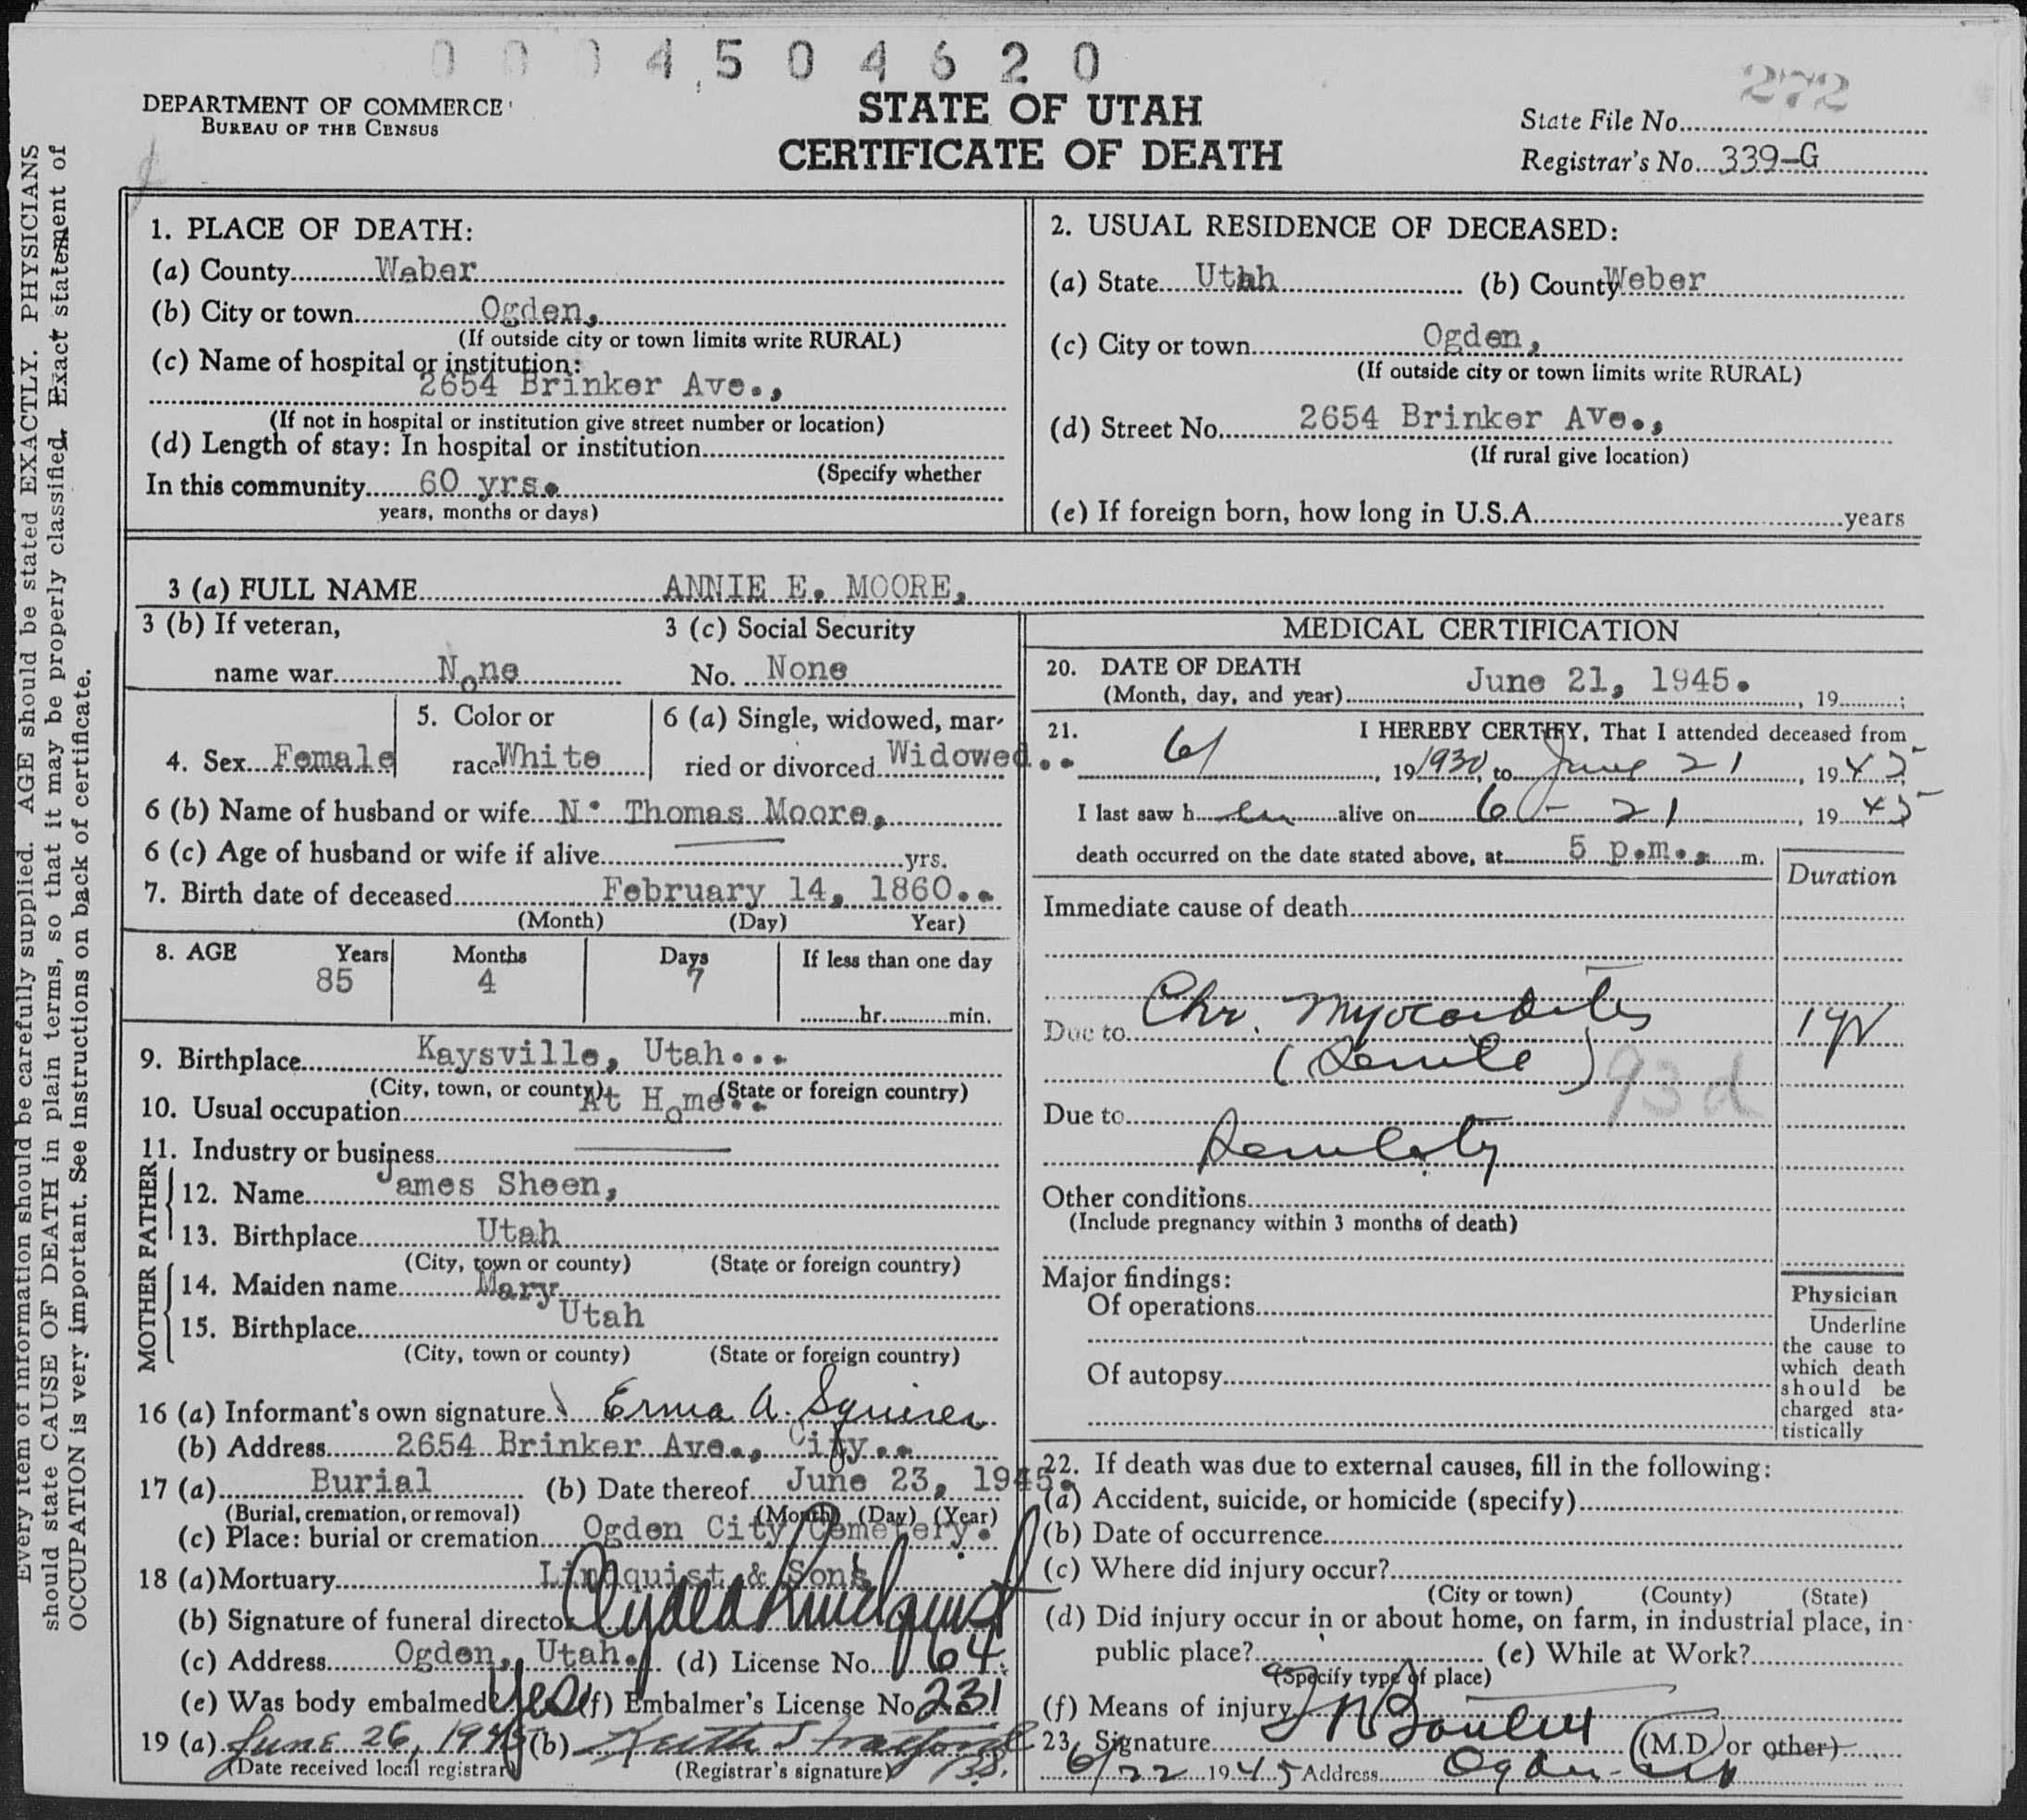 0 0 0 4 5 0 4 6 2 0
272
DEPARTMENT OF COMMERCE
BUREAU OF THE CENSUS
STATE OF UTAH
CERTIFICATE OF DEATH
State File No.
Registrar's No. 339-G
Every item of information should be carefully supplied. AGE should be stated EXACTLY. PHYSICIANS
should state CAUSE OF DEATH in plain terms, so that it may be properly classified. Exact statement of
OCCUPATION is very important. See instructions on back of certificate.
1. PLACE OF DEATH:
(a) County Weber
(b) City or town Ogden,
(If outside city or town limits write RURAL)
(c) Name of hospital or institution:
2654 Brinker Ave.,
(If not in hospital or institution give street number or location)
(d) Length of stay: In hospital or institution
(Specify whether
In this community 60 yrs.
years, months or days)
2. USUAL RESIDENCE OF DECEASED:
(a) State Utah (b) County Weber
(c) City or town Ogden,
(If outside city or town limits write RURAL)
(d) Street No. 2654 Brinker Ave.,
(If rural give location)
(e) If foreign born, how long in U.S.A. years
3 (a) FULL NAME ANNIE E. MOORE,
3 (b) If veteran,
name war None
3 (c) Social Security
No. None
4. Sex Female
5. Color or
race White
6 (a) Single, widowed, mar-
ried or divorced Widowed..
6 (b) Name of husband or wife N. Thomas Moore,
6 (c) Age of husband or wife if alive yrs.
7. Birth date of deceased February 14, 1860..
(Month) (Day) Year)
8. AGE Years Months Days If less than one day
85 4 7
hr. min.
9. Birthplace Kaysville, Utah...
(City, town, or county) (State or foreign country)
10. Usual occupation At Home..
11. Industry or business
FATHER
12. Name James Sheen,
13. Birthplace Utah
(City, town or county) (State or foreign country)
MOTHER
14. Maiden name Mary
15. Birthplace Utah
(City, town or county) (State or foreign country)
16 (a) Informant's own signature Erma A. Squires
(b) Address 2654 Brinker Ave., City..
17 (a) Burial (b) Date thereof June 23, 1945.
(Burial, cremation, or removal) (Month) (Day) (Year)
(c) Place: burial or cremation Ogden City Cemetery.
18 (a) Mortuary Lindquist & Sons
(b) Signature of funeral director Clyde Lindquist
(c) Address Ogden, Utah. (d) License No. 64
(e) Was body embalmed Yes (f) Embalmer's License No 231
19 (a) June 26, 1945 (b) Keith Stratford
(Date received local registrar) (Registrar's signature)
MEDICAL CERTIFICATION
20. DATE OF DEATH
(Month, day, and year) June 21, 1945. , 19 ;
21. I HEREBY CERTIFY, That I attended deceased from
6/ , 19 1930, to June 21 , 19 45
I last saw h er alive on 6 - 21 , 19 45
death occurred on the date stated above, at 5 p.m., m.
Duration
Immediate cause of death
Due to Chr. Myocarditis 1 yr
(Senile) 93d
Due to
Senility
Other conditions
(Include pregnancy within 3 months of death)
Major findings:
Of operations
Of autopsy
Physician
Underline
the cause to
which death
should be
charged sta-
tistically
22. If death was due to external causes, fill in the following:
(a) Accident, suicide, or homicide (specify)
(b) Date of occurrence
(c) Where did injury occur?
(City or town) (County) (State)
(d) Did injury occur in or about home, on farm, in industrial place, in
public place? (e) While at Work?
(Specify type of place)
(f) Means of injury
23. Signature (M.D. or other)
6/22 1945 Address Ogden